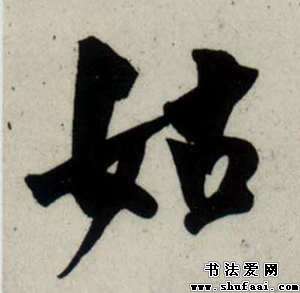 姑
书法爱网
www.shufaai.com